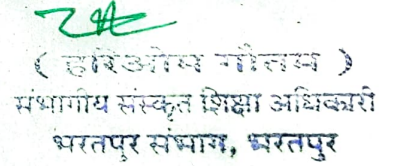 ( हरिओम गौतम )
संभागीय संस्कृत शिक्षा अधिकारी
भरतपुर संभाग, भरतपुर